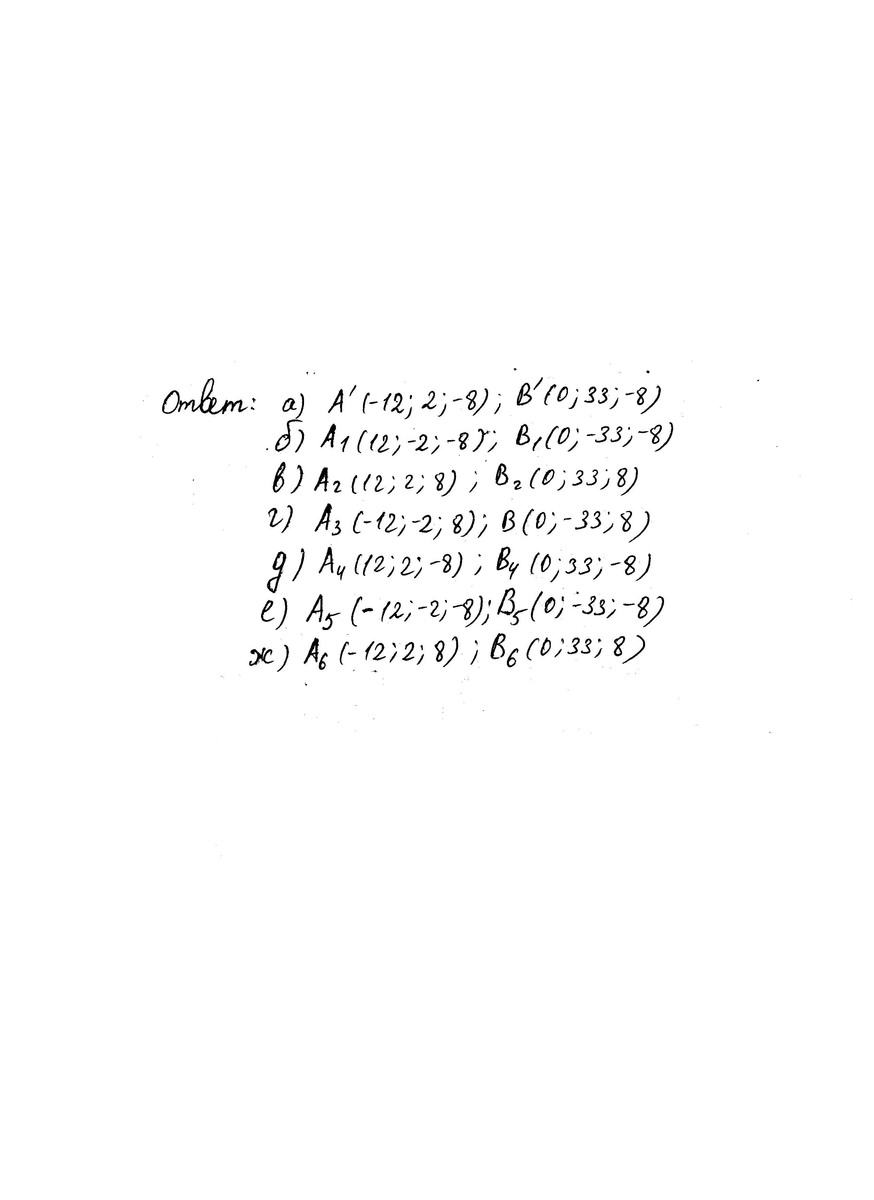 Ответ: а) A′(-12; 2; -8); B′(0; 33; -8)
б) A₁(12; -2; -8); B₁(0; -33; -8)
в) A₂(12; 2; 8); B₂(0; 33; 8)
г) A₃(-12; -2; 8); B(0; -33; 8)
д) A₄(12; 2; -8); B₄(0; 33; -8)
е) A₅(-12; -2; -8); B₅(0; -33; -8)
ж) A₆(-12; 2; 8); B₆(0; 33; 8)